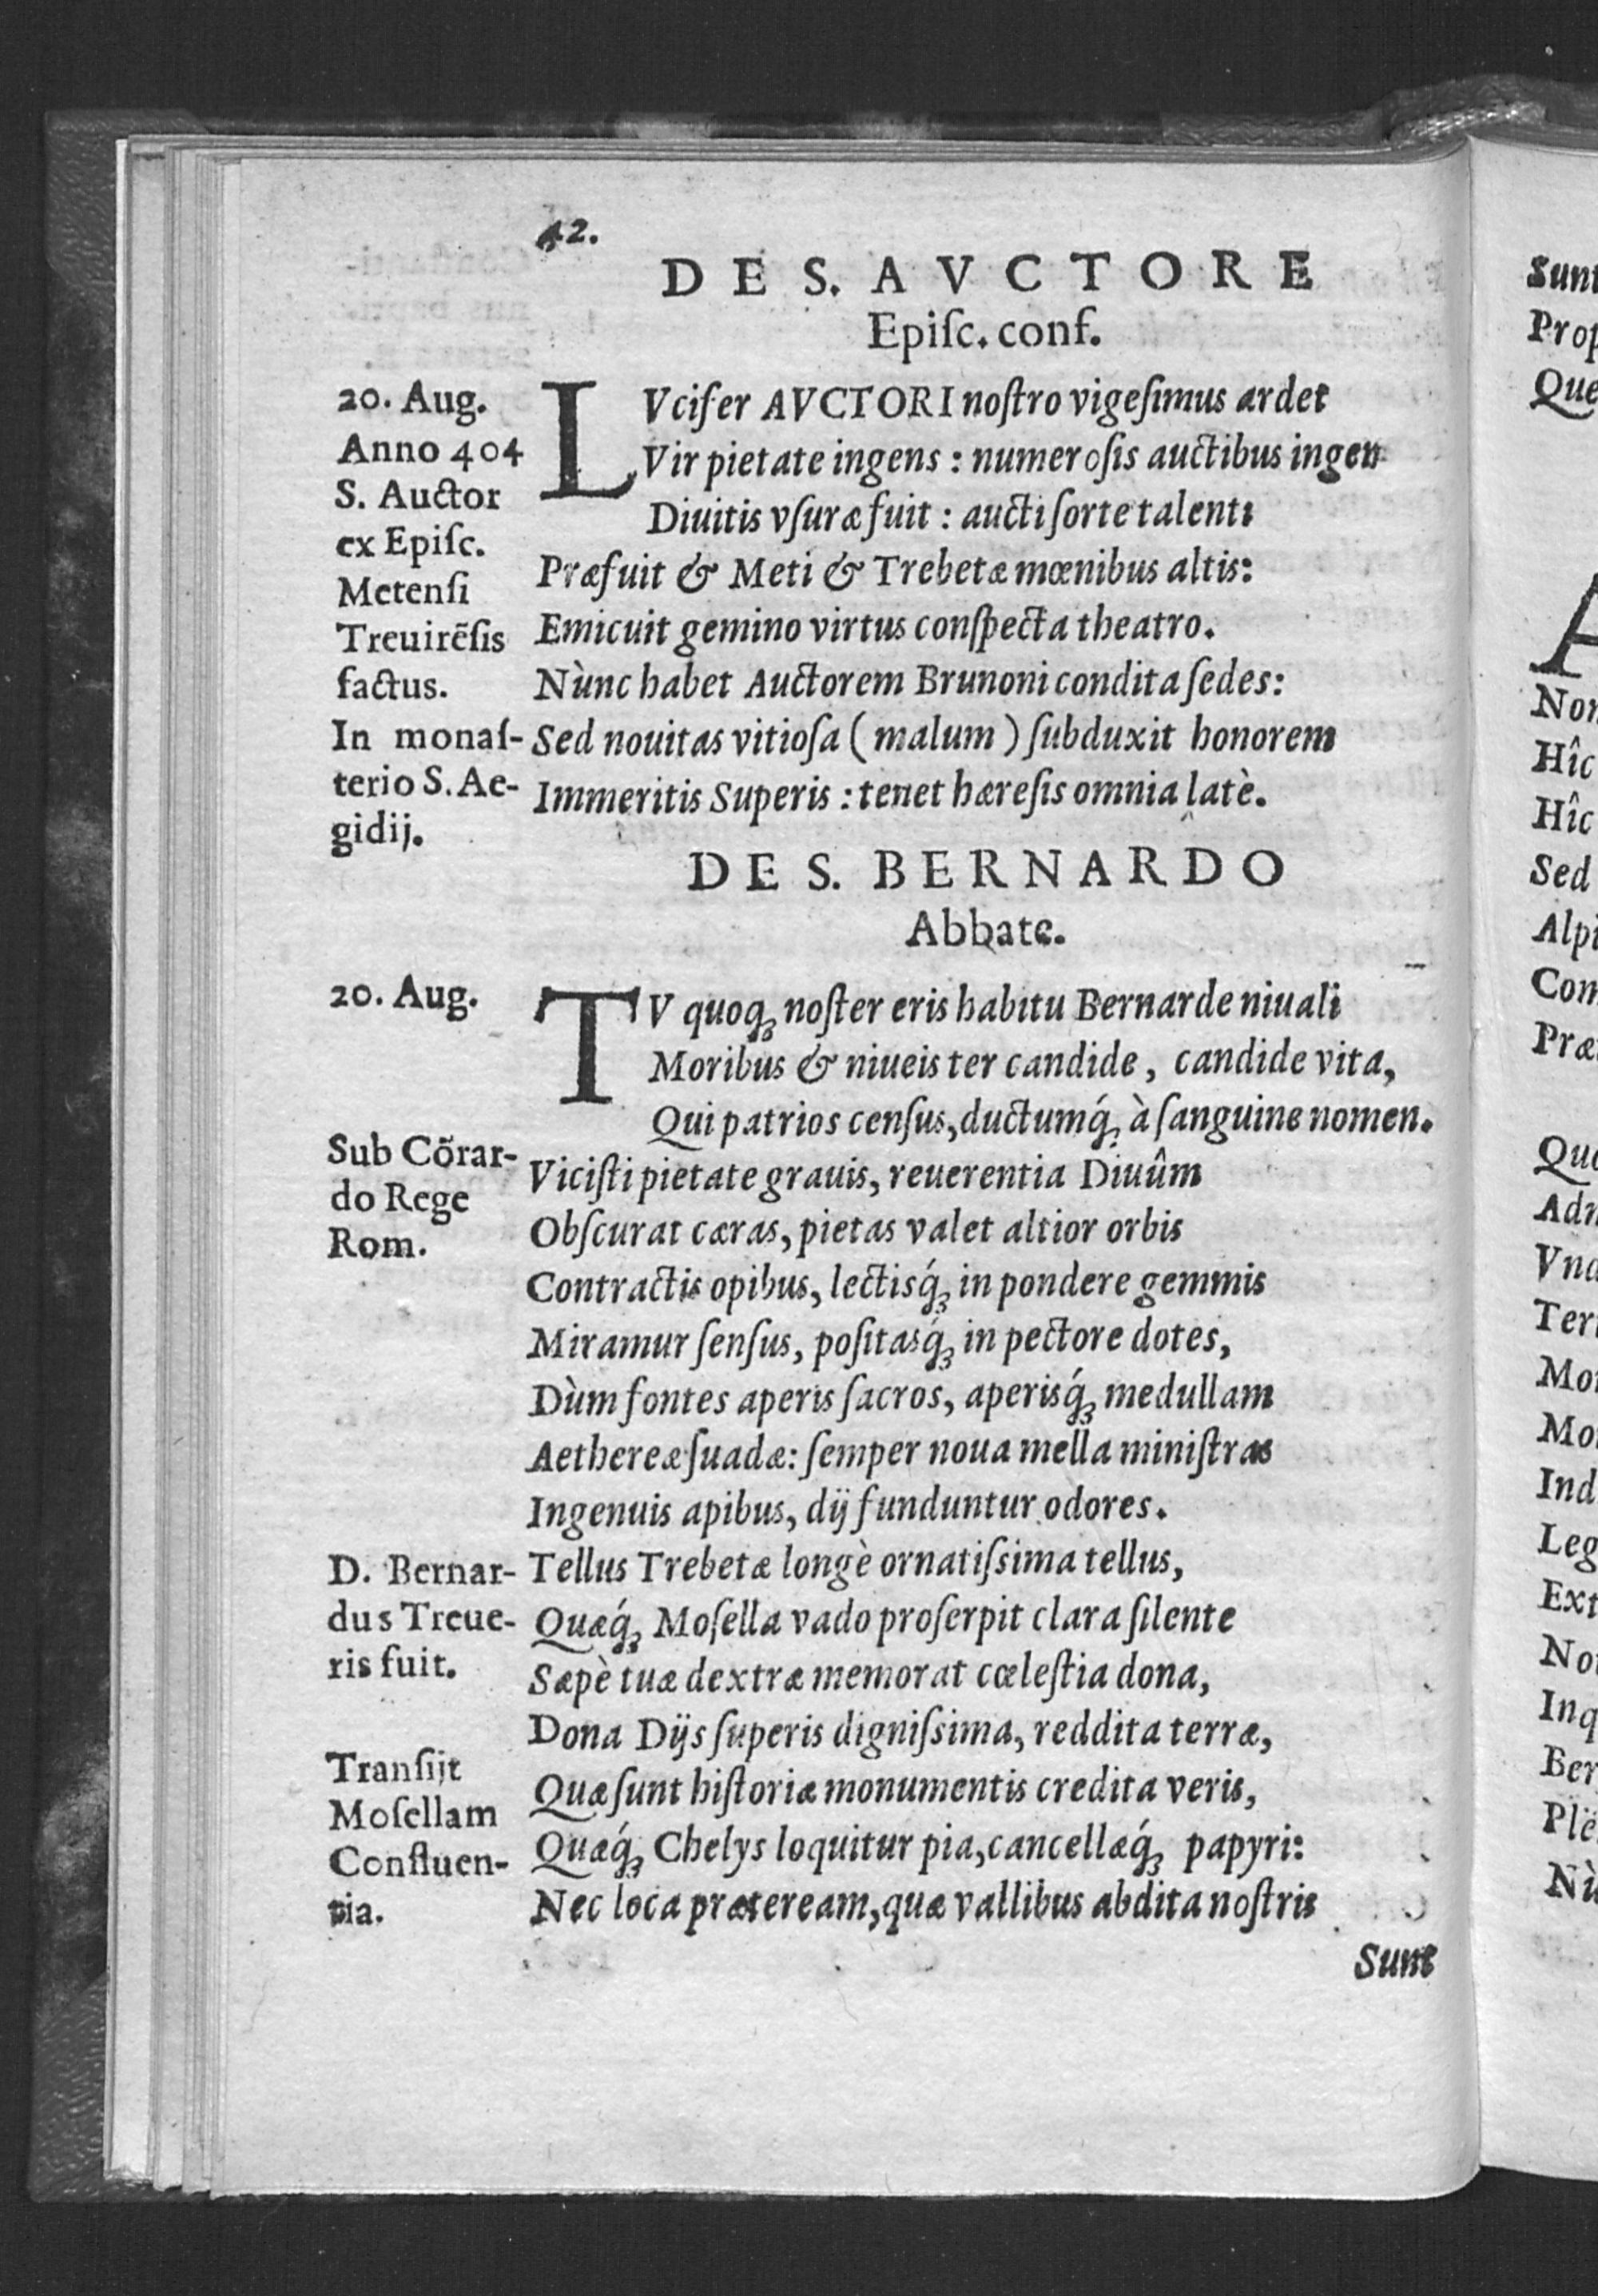 42.
DE S. AVCTORE
Epiſc. conf.
20. Aug.
Anno 404
S. Auctor
ex Epiſc.
Metenſi
Treuirēſis
factus.
In monaſ-
terio S. Ae-
gidij.
LVcifer AVCTORI noſtro vigeſimus ardet
Vir pietate ingens : numeroſis auctibus ingen
Diuitis vſuræ fuit : aucti ſorte talenti
Præfuit & Meti & Trebetæ mœnibus altis:
Emicuit gemino virtus conſpecta theatro.
Nùnc habet Auctorem Brunoni condita ſedes:
Sed nouitas vitioſa ( malum ) ſubduxit honorem
Immeritis Superis : tenet hæreſis omnia latè.
DE S. BERNARDO
Abbate.
20. Aug.
Sub Cõrar-
do Rege
Rom.
D. Bernar-
dus Treue-
ris fuit.
Tranſijt
Moſellam
Confluen-
tia.
TV quoq́ꝫ noſter eris habitu Bernarde niuali
Moribus & niueis ter candide, candide vita,
Qui patrios cenſus, ductumq́ꝫ à ſanguine nomen.
Viciſti pietate grauis, reuerentia Diuûm
Obſcurat cæras, pietas valet altior orbis
Contractis opibus, lectisq́ꝫ in pondere gemmis
Miramur ſenſus, poſitasq́ꝫ in pectore dotes,
Dùm fontes aperis ſacros, aperisq́ꝫ medullam
Aethereæ ſuadæ: ſemper noua mella miniſtras
Ingenuis apibus, dij funduntur odores.
Tellus Trebetæ longè ornatiſsima tellus,
Quæq́ꝫ Moſella vado proſerpit clara ſilente
Sæpè tuæ dextræ memorat cœleſtia dona,
Dona Dijs ſuperis digniſsima, reddita terræ,
Quæ ſunt hiſtoriæ monumentis credita veris,
Quæq́ꝫ Chelys loquitur pia, cancellæq́ꝫ papyri:
Nec loca prætereram, quæ vallibus abdita noſtris
Sunt
Sunt
Prop
Que
A
Non
Hîc
Hîc
Sed
Alpi
Com
Præ
Quo
Adn
Vna
Ter
Mo
Mo
Ind
Leg
Ext
No
Inq
Ber
Plë
Nù